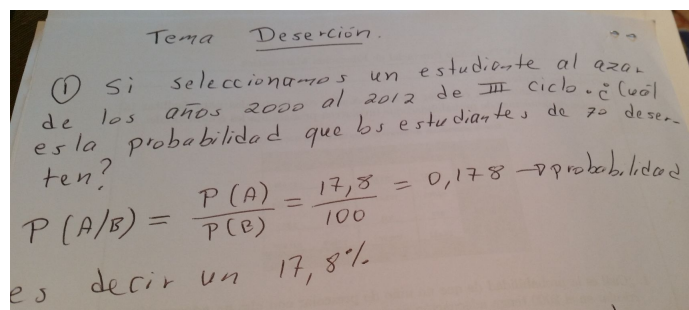 Tema Deserción.
① Si seleccionamos un estudiante al azar
de los años 2000 al 2012 de III ciclo. ¿Cuál
es la probabilidad que los estudiantes de 7º deser-
ten?
P(A/B) = P(A)/P(B) = 17,8/100 = 0,178 → probabilidad
es decir un 17,8%